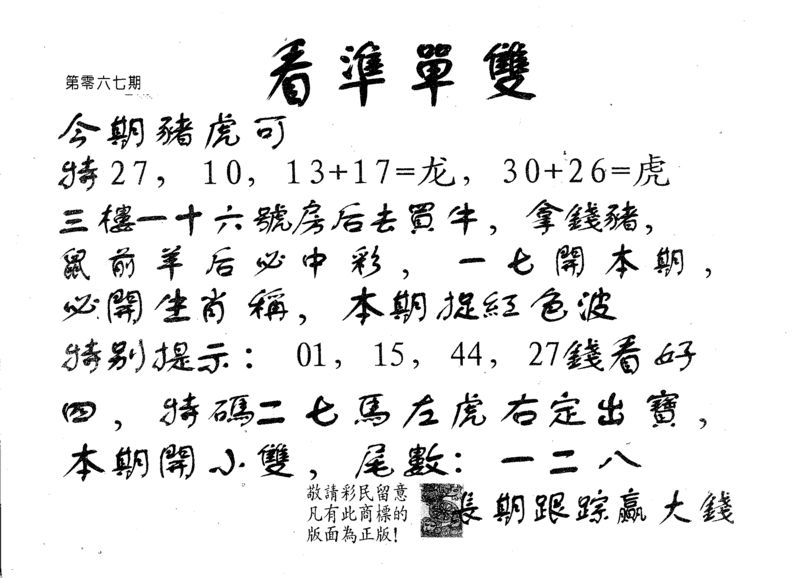 第零六七期
看準單雙
今期豬虎可
特27， 10， 13+17=龙， 30+26=虎
三樓一十六號房后去買牛，拿錢豬，
鼠前羊后必中彩，一七開本期，
必開生肖稱，本期捉紅色波
特别提示： 01， 15， 44， 27錢看好
四，特碼二七馬左虎右定出寶，
本期開小雙，尾數：一二八
敬請彩民留意
凡有此商標的
版面為正版！
長期跟踪赢大錢